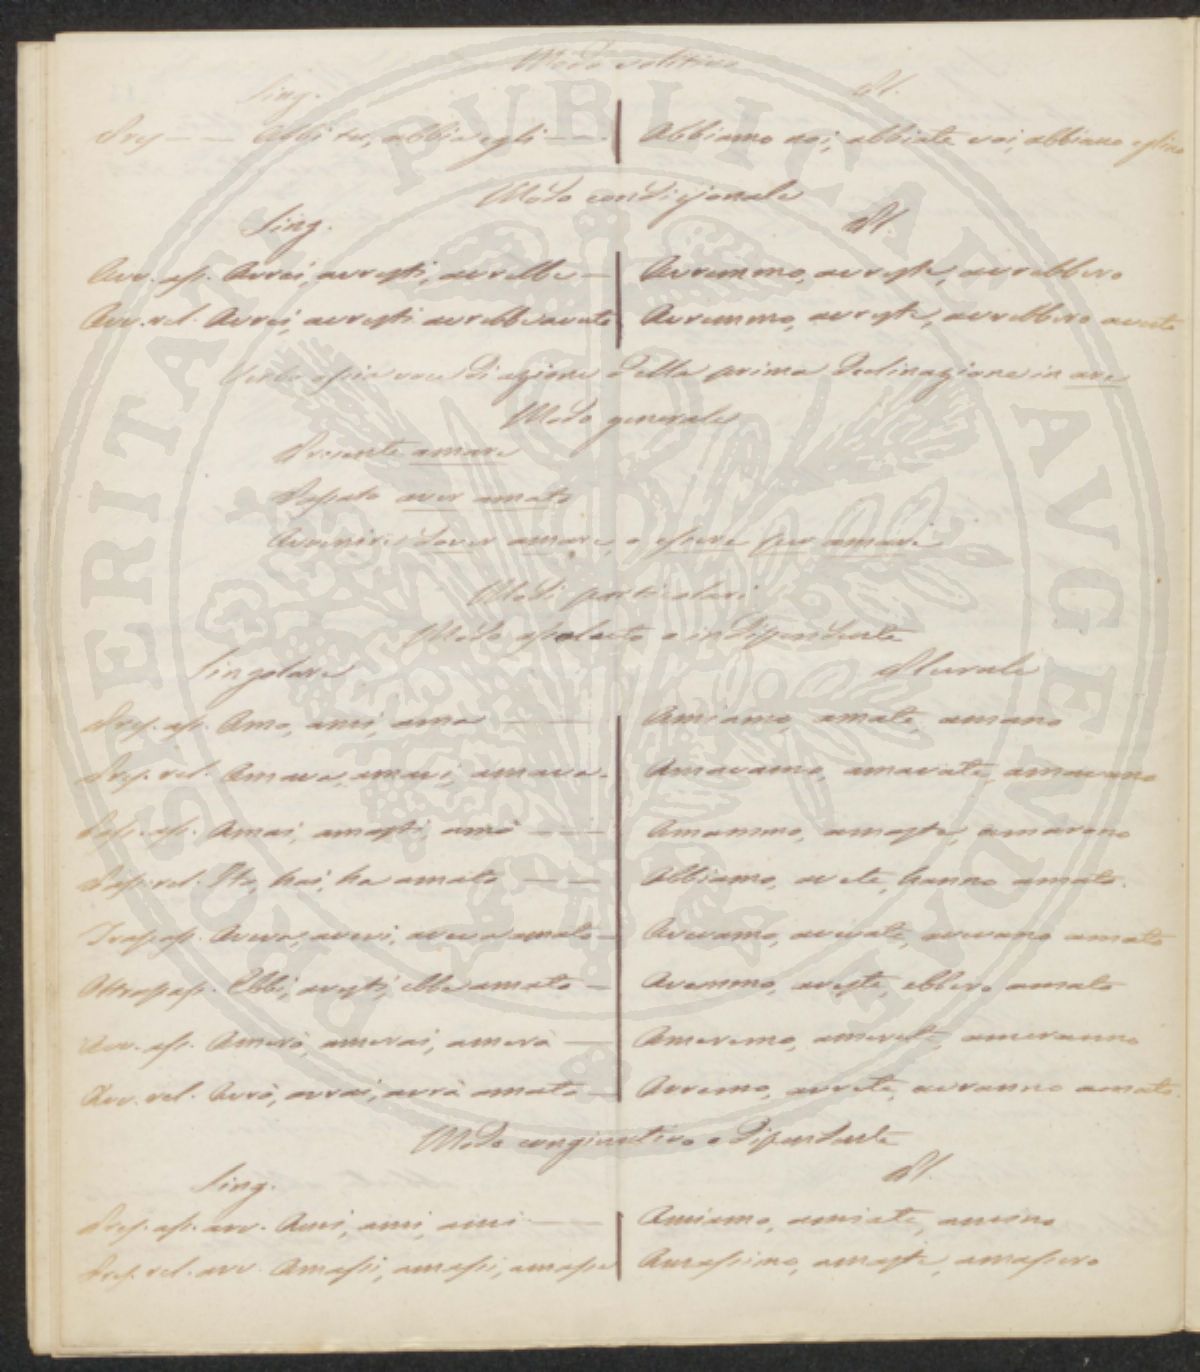 Modo volitivo
Sing. Pl.
Pres — — Abbi tu, abbia egli — — Abbiamo noi, abbiate voi, abbiano eglino
Modo condizionale
Sing. Pl.
Avv. ass. Avrei, avresti, avrebbe — Avremmo, avreste, avrebbero
Avv. rel. Avrei, avresti avrebbe avuto Avremmo, avreste, avrebbero avuto
Verbo ossia voce di azione della prima declinazione in are
Modo generale
Presente amare
Passato aver amato
Avvenire dover amare, o essere per amare
Modi particolari
Modo assoluto o indipendente
Singolare Plurale
Pres. ass. Amo, ami, ama — — Amiamo, amate, amano
Pres. rel. Amava, amavi, amava — Amavamo, amavate, amavano
Pass. ass. Amai, amasti, amò — — Amammo, amaste, amarono
Pass. rel. Ho, hai, ha amato — — Abbiamo, avete, hanno amato.
Trapass. Aveva, avevi, aveva amato — Avevamo, avevate, avevano amato
Oltrapass. Ebbi, avesti, ebbe amato — Avemmo, aveste, ebbero amato
Avv. ass. Amerò, amerai, amerà — Ameremo, amerete, ameranno
Avv. rel. Avrò, avrai, avrà amato — Avremo, avrete, avranno amato.
Modo congiuntivo o dipendente
Sing. Pl.
Pres. ass. avv. Ami, ami, ami — — Amiamo, amiate, amino
Pres. rel. avv. Amassi, amassi, amasse Amassimo, amaste, amassero
PROSPERITATI PVBLICAE AVGENDAE